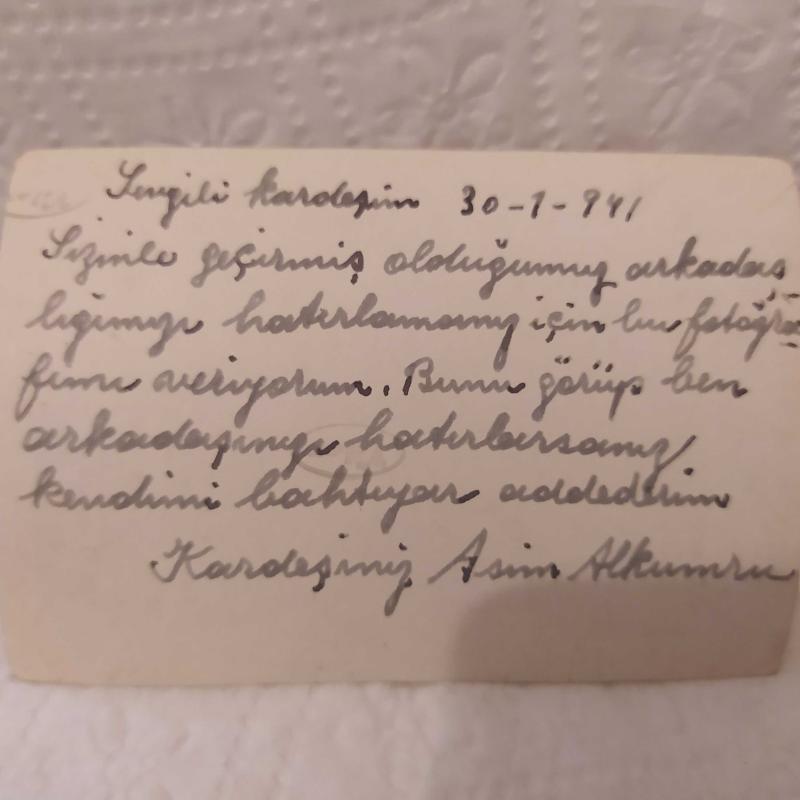 Sevgili kardeşim 30-1-941
Sizinle geçirmiş olduğumuz arkadaş
lığımızı hatırlamanız için bu fotoğra
fımı veriyorum. Bunu görüp ben
arkadaşınızı hatırlarsanız
kendimi bahtıyar addederim
Kardeşiniz Asım Alkumru